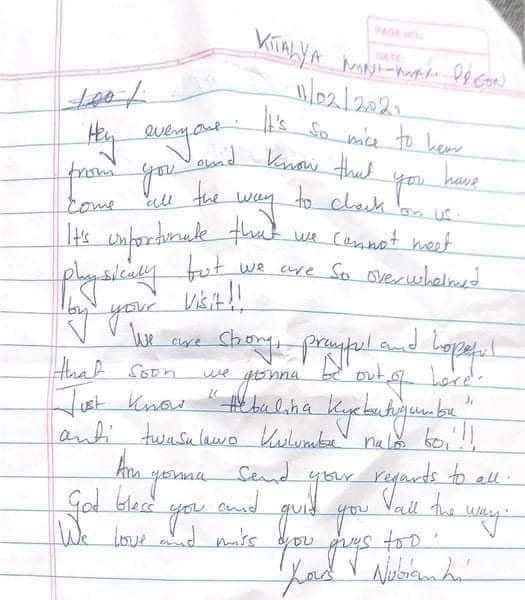 PAGE NO.:
DATE:
KITALYA MINI-MAX. PRISON
100%
11/02/2021
Hey everyone. It's so nice to hear
from you and know that you have
come all the way to check on us.
It's unfortunate that we cannot meet
physically but we are so overwhelmed
by your visit!!
We are strong, prayful and hopeful
that soon we gonna be out of here.
Just know "Tebalina Kyebatugamba"
anti twasalawo kulumba nalo boi!!
Am gonna send your regards to all.
God bless you and guid you all the way.
We love and miss you guys too.
Yours Nubian Li